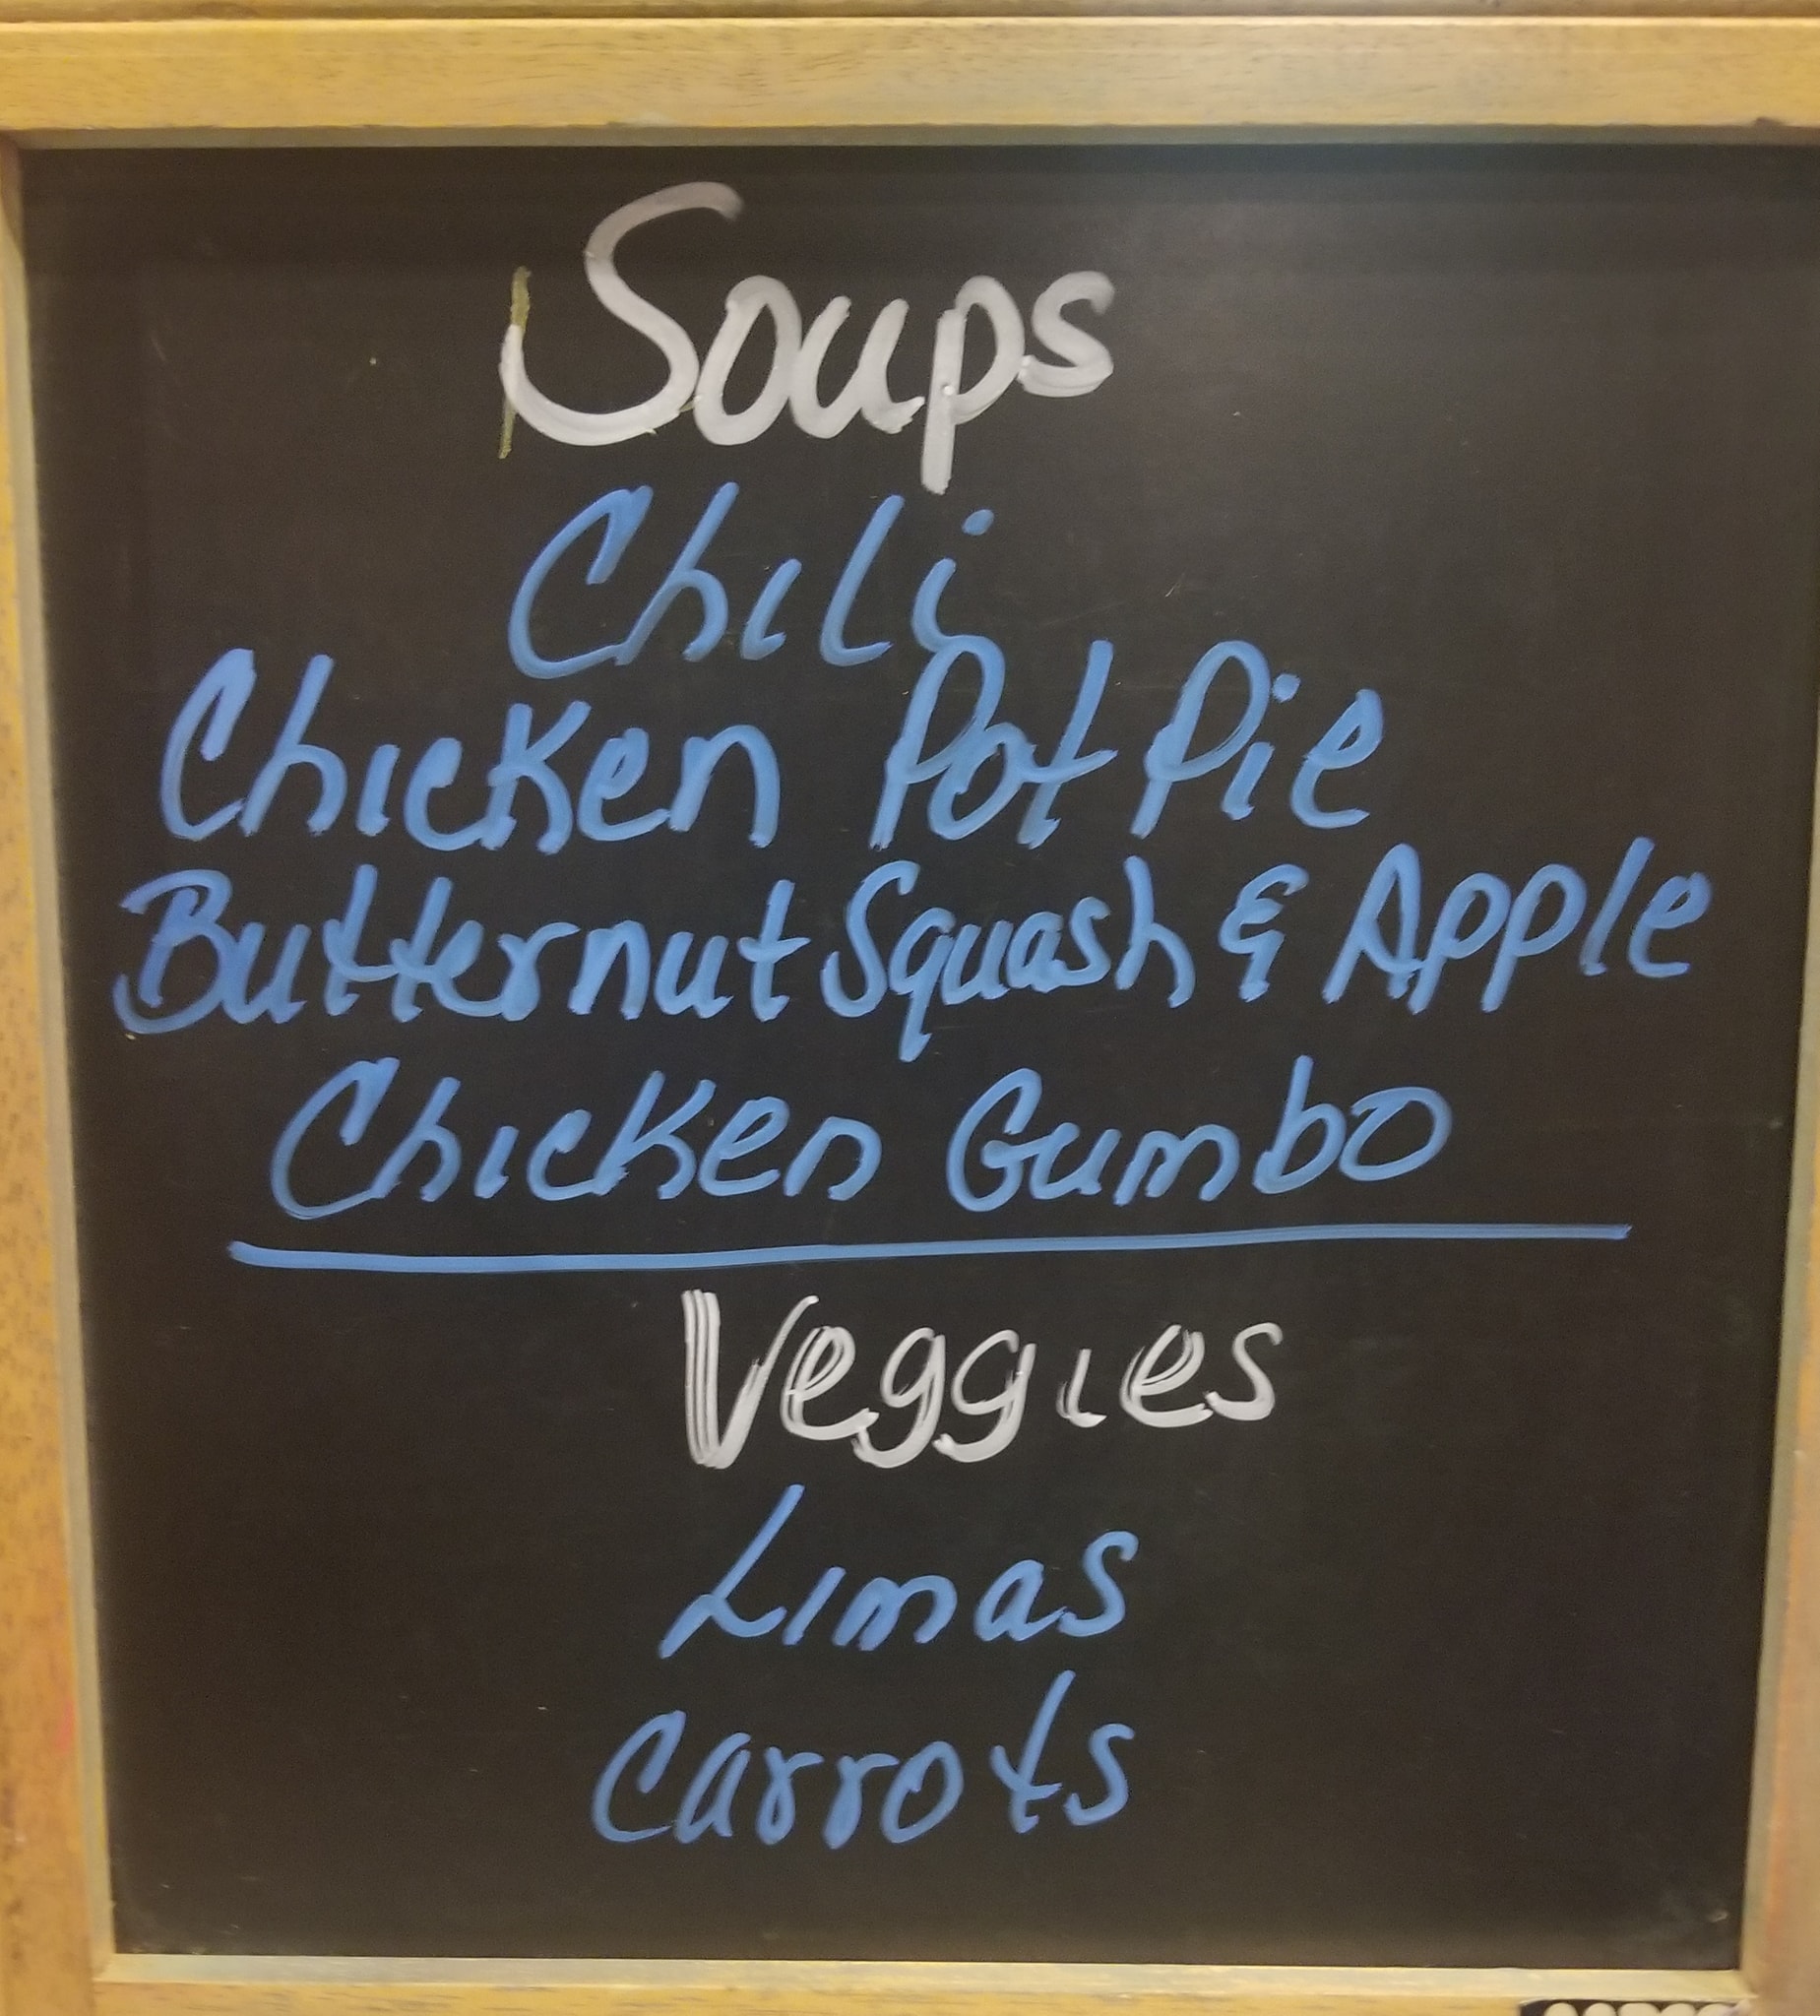 Soups
Chili
Chicken Pot Pie
Butternut Squash & Apple
Chicken Gumbo
Veggies
Limas
Carrots